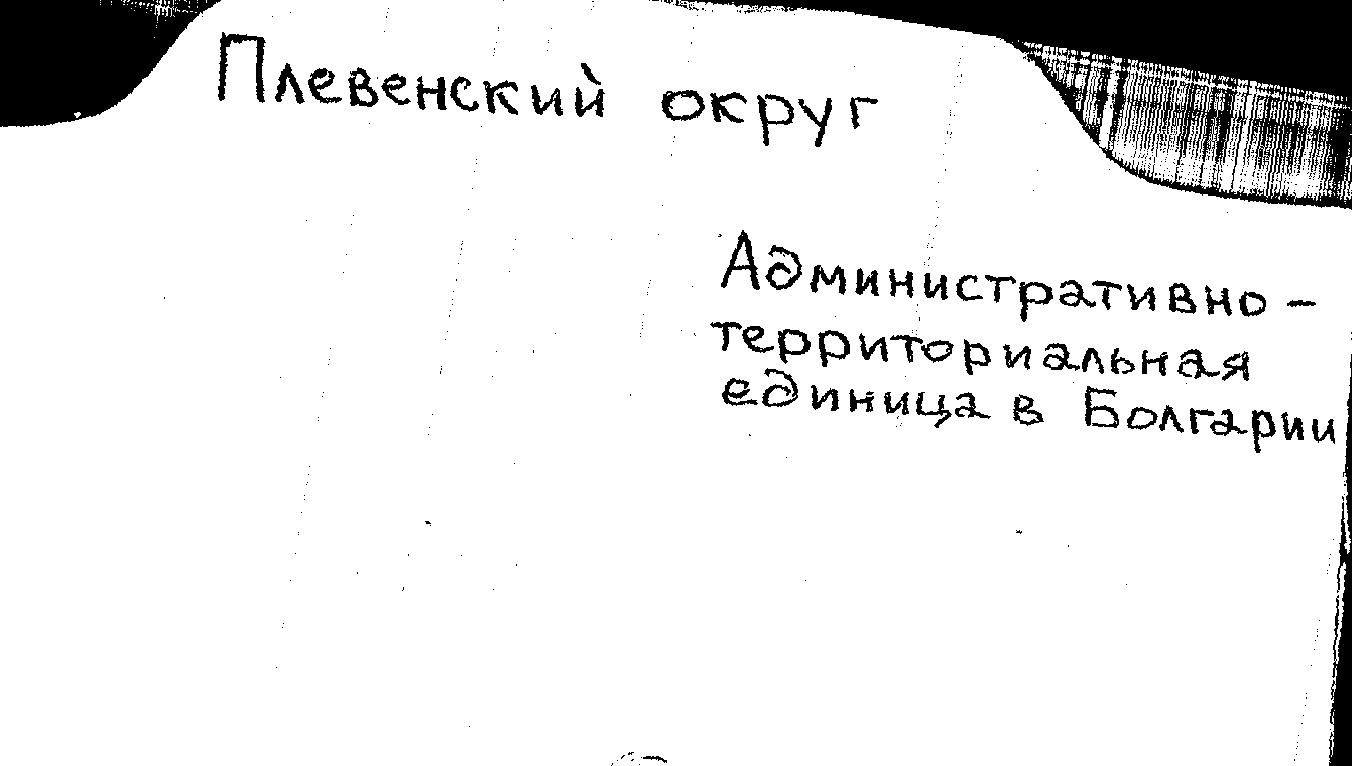 Плевенский округ
Административно -
территориальная
единица в Болгарии